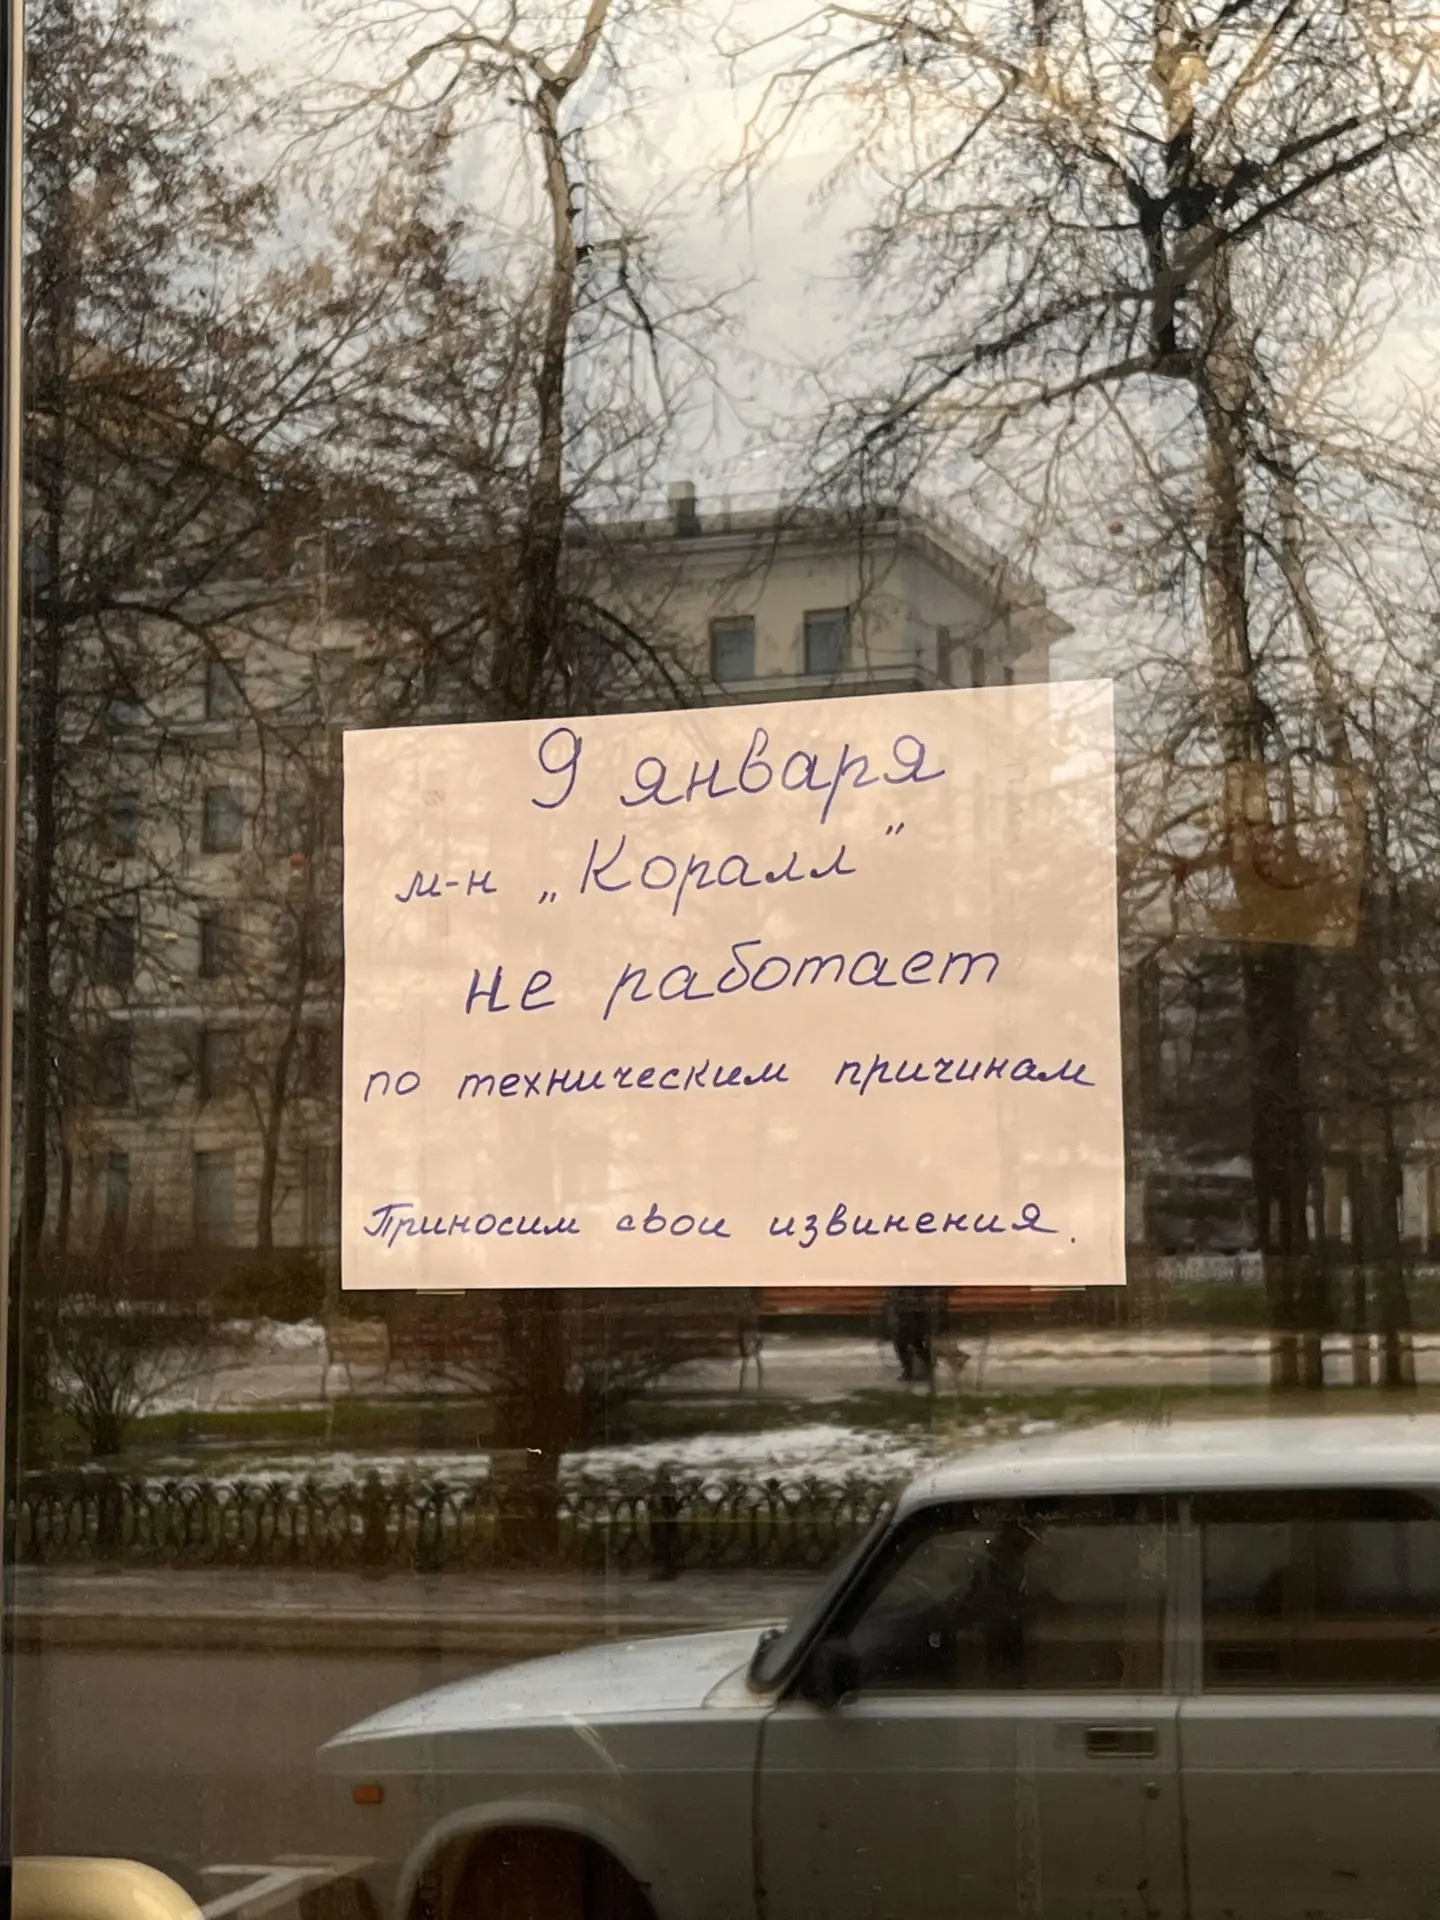 9 января
м-н „Коралл”
не работает
по техническим причинам
Приносим свои извинения.